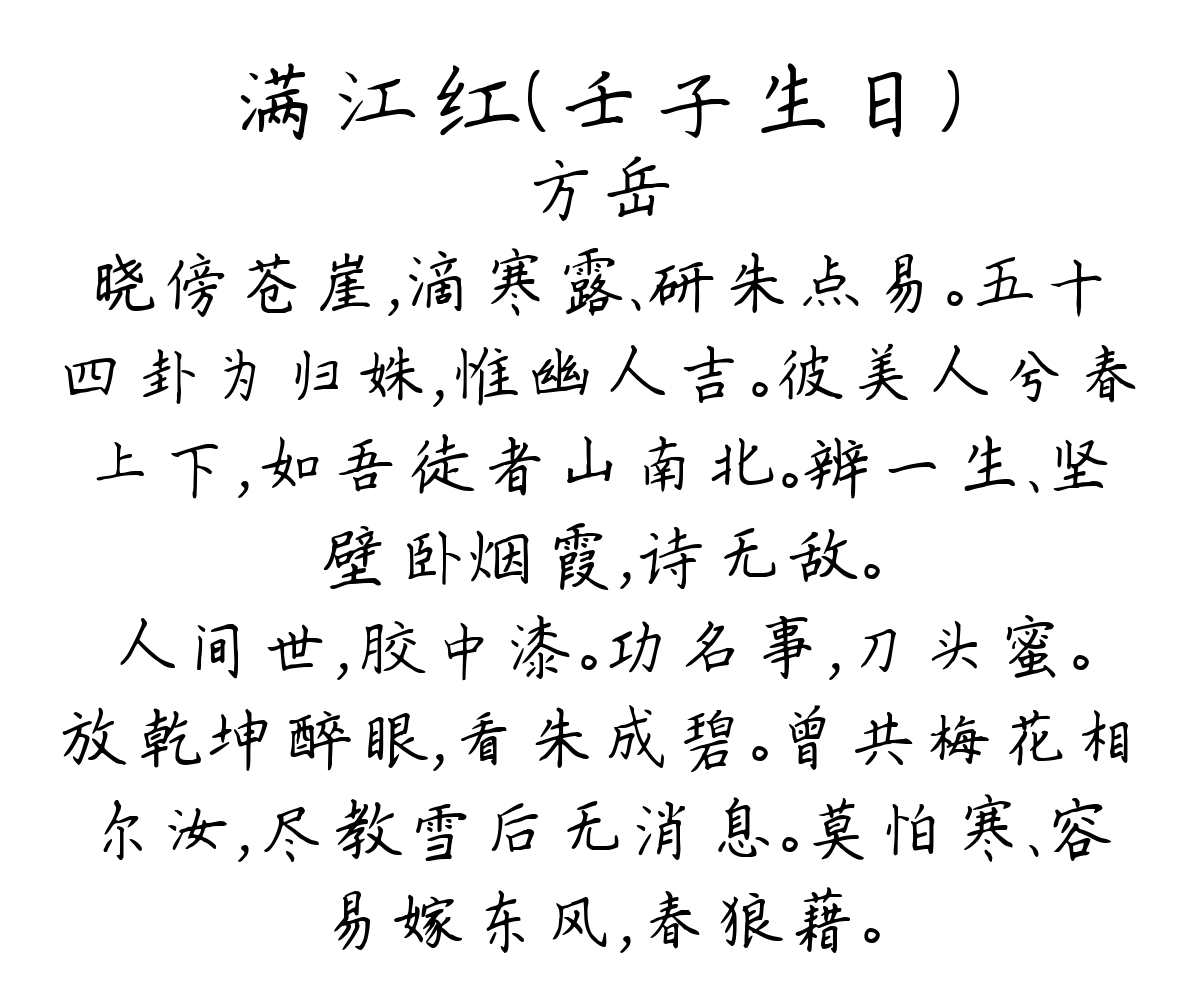 满江红(壬子生日)
方岳
晓傍苍崖,滴寒露、研朱点易。五十
四卦为归姝,惟幽人吉。彼美人兮春
上下,如吾徒者山南北。辨一生、坚
壁卧烟霞,诗无敌。
人间世,胶中漆。功名事,刀头蜜。
放乾坤醉眼,看朱成碧。曾共梅花相
尔汝,尽教雪后无消息。莫怕寒、容
易嫁东风,春狼藉。